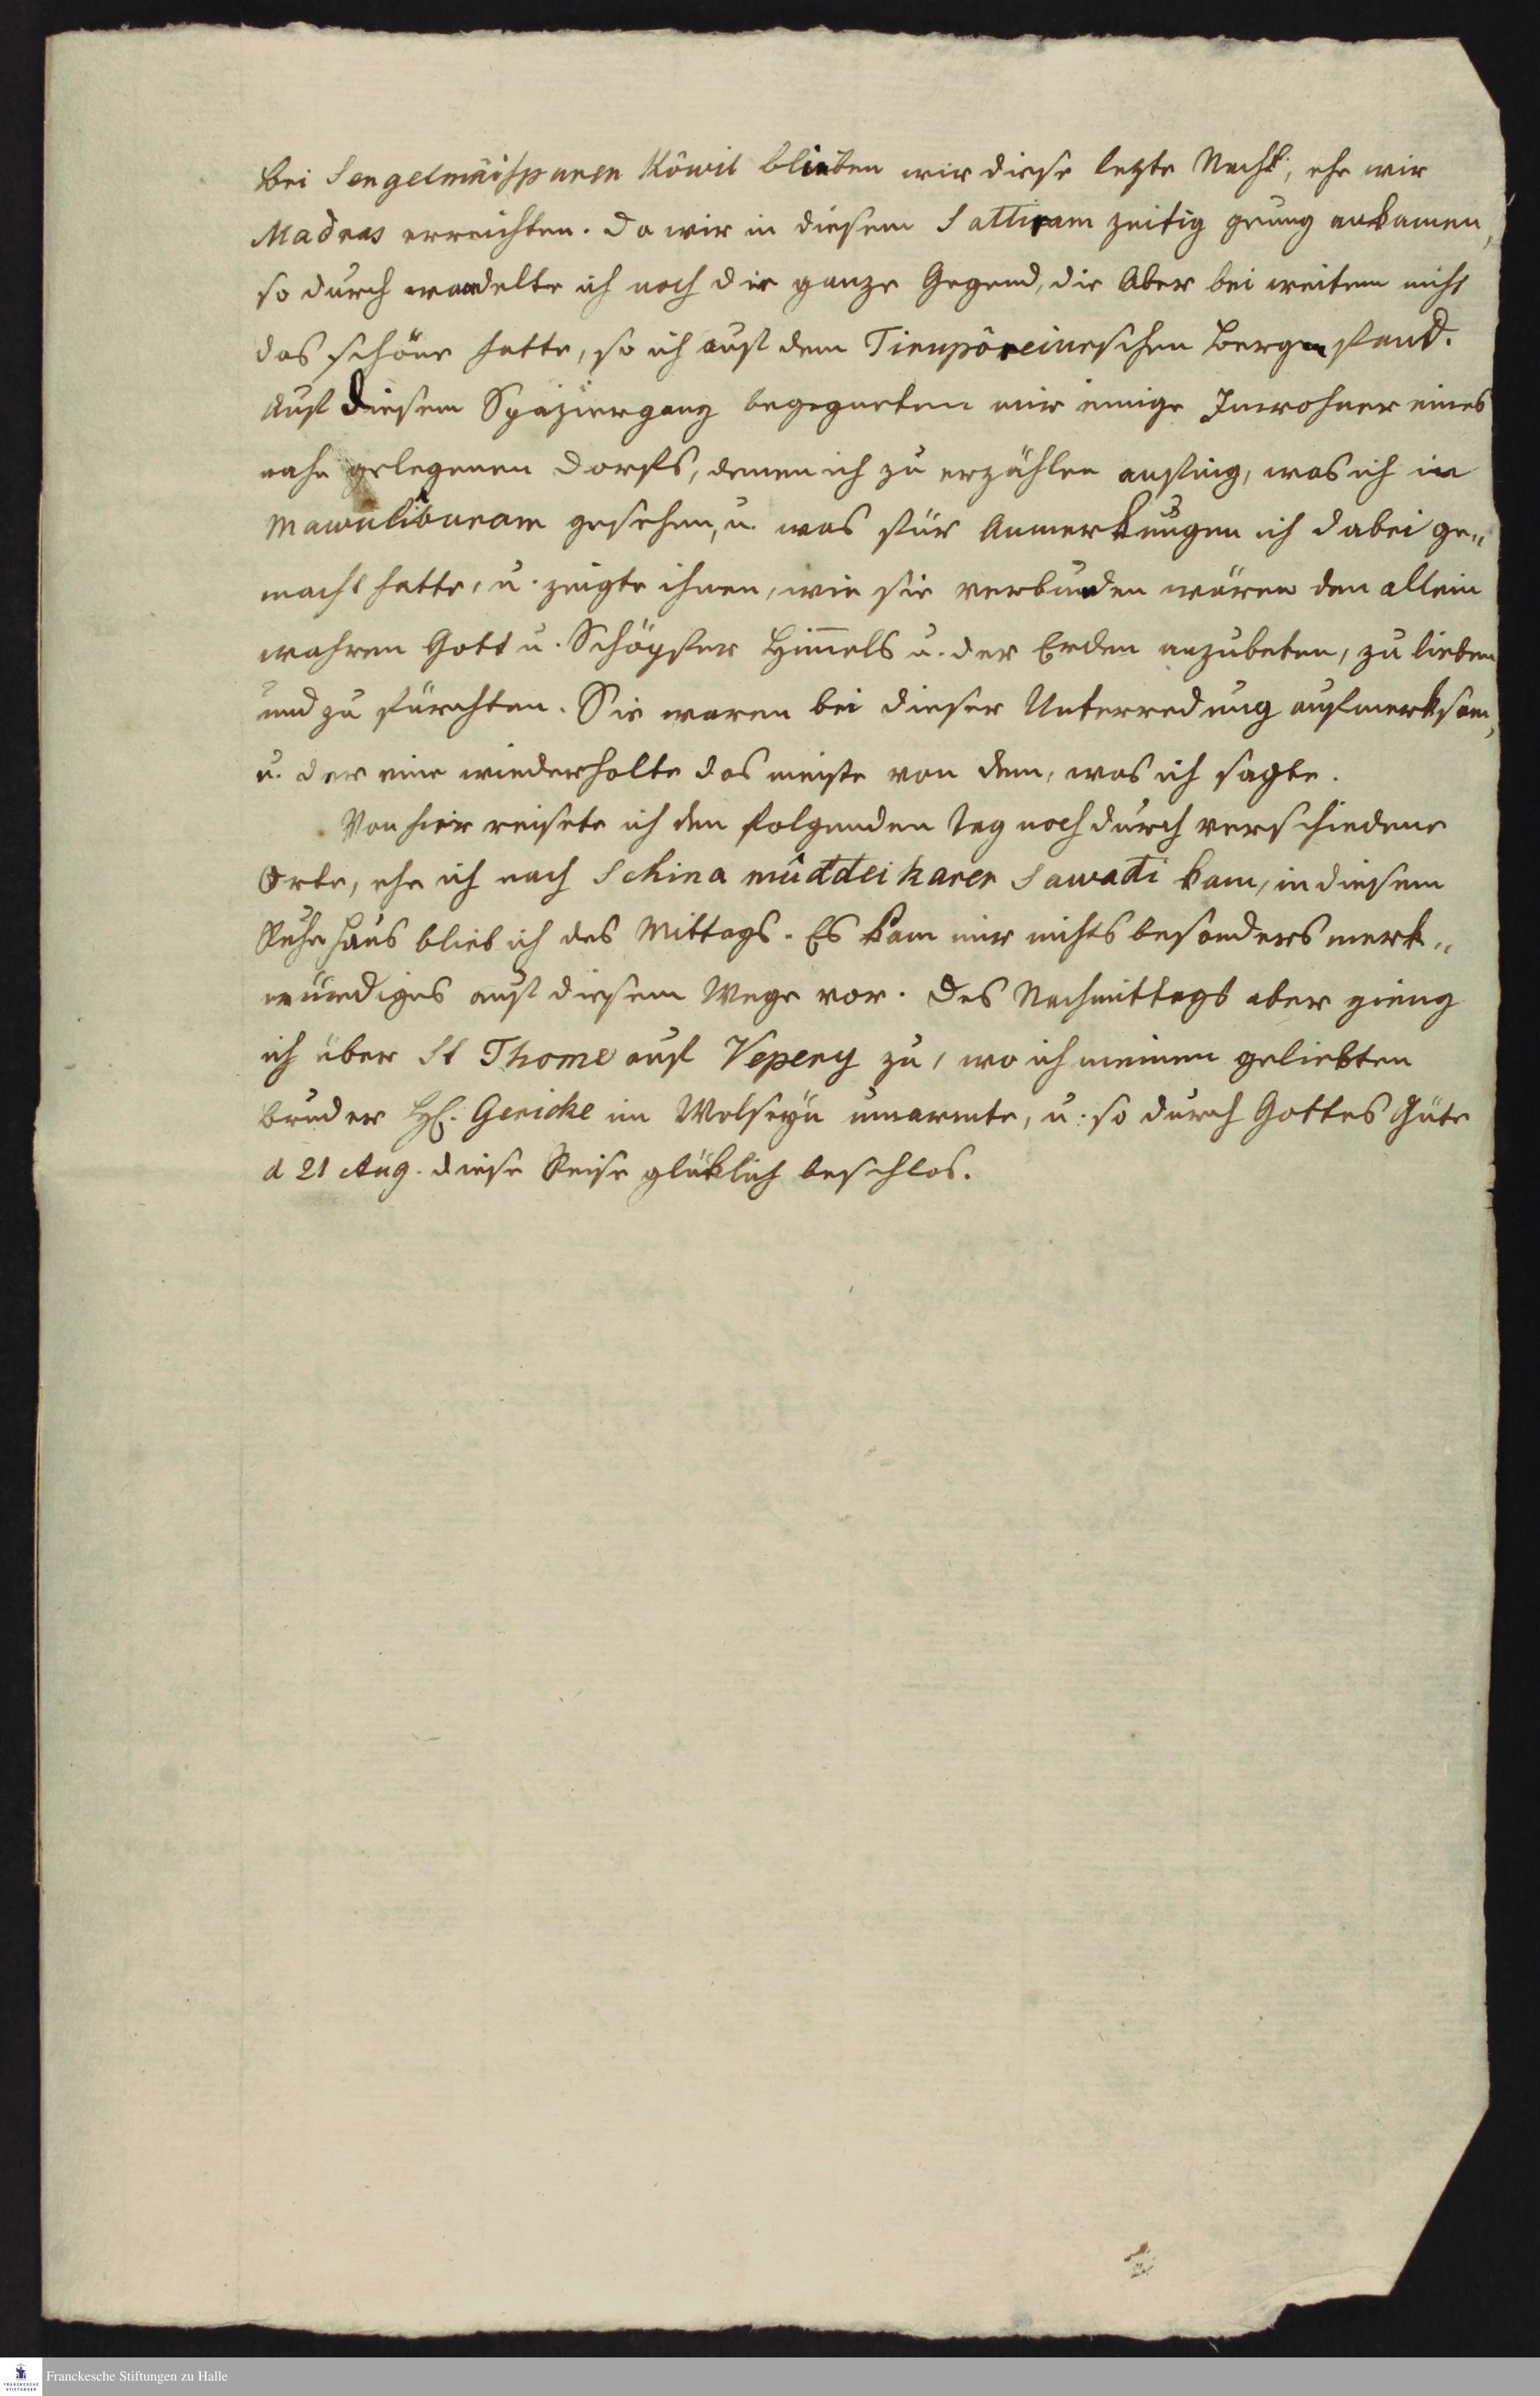 bei Sengelmäispuren Kôwil blieben wir diese lezte Nacht, ehe wir
Madras erreichten. Da wir in diesem Sattiram zeitig genug ankamen,
so durch wandelte ich noch die ganze Gegend, die aber bei weitem nicht
das schöne hatte, so ich auf dem Tirupôreineschen Bergen fand.
Auf diesem Spaziergang begegneten mir einige Inwohner eines
nahe gelegenen Dorfs, denen ich zu erzählen anfing, was ich in
Mawuliburam gesehen, u. was für Anmerkungen ich dabei ge„
macht hatte, u. zeigte ihnen, wie sie verbunden wären den allein
wahren Gott u. Schöpfer Him̄els u. der Erden anzubeten, zu lieben
und zu fürchten. Sie waren bei dieser Unterredung aufmerksam,
u. der eine wiederholte das meiste von dem, was ich sagte.
Von hier reisete ich den folgenden Tag noch durch verschiedene
Orte, ehe ich nach Schina mûddei karer Sawadi kam, in diesem
Ruhe Haus blieb ich des Mittags. Es kam mir nichts besonders merk„
würdiges auf diesem Wege vor. Des Nachmittags aber gieng
ich über St Thome auf Vepery zu, wo ich meinen geliebten
Bruder H. Gericke im Wolseyn umarmte, u. so durch Gottes Güte
d 21 Aug. diese Reise glüklich beschlos.
Franckesche Stiftungen zu Halle